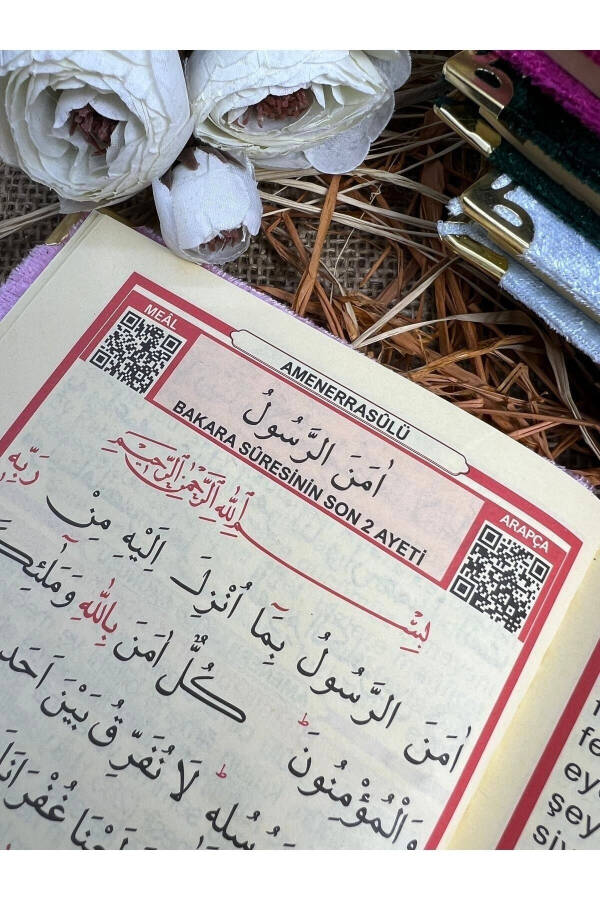 MEÂL
AMENERRASÛLÜ
اٰمَنَ الرَّسُولُ
BAKARA SÛRESİNİN SON 2 AYETİ
ARAPÇA
بِسْمِ اللّٰهِ الرَّحْمٰنِ الرَّحِيمِ
اٰمَنَ الرَّسُولُ بِمَٓا اُنْزِلَ اِلَيْهِ مِنْ رَبِّهٖ
وَالْمُؤْمِنُونَۜ كُلٌّ اٰمَنَ بِاللّٰهِ
لَا نُفَرِّقُ بَيْنَ اَحَدٍ
غُفْرَانَكَ